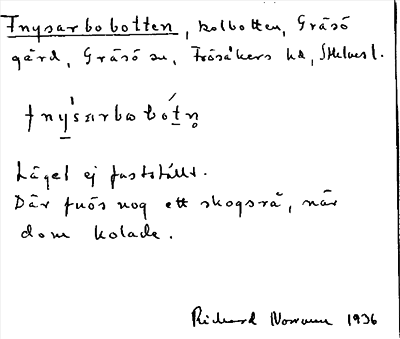 Fnysarbobotten, kolbotten, Gräsö
gård, Gräsö sn, Frösåkers hd, Sthlms l.
fnysarbobótn̥
Läget ej fastställt.
Där fnös nog ett skogsrå, när
dom kolade.
Richard 1936